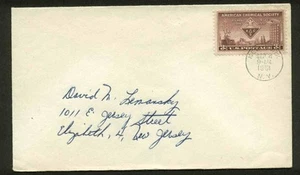 AMERICAN CHEMICAL SOCIETY
U.S. POSTAGE
N.Y.
David M.
1011 E. Jersey Street
Elizabeth, 4, New Jersey